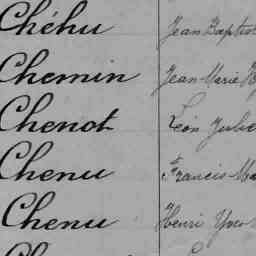 Chéhu Jean Baptis
Chemin Jean Marie
Chenot Léon Jules
Chenu Francis Ma
Chenu Henri Yves